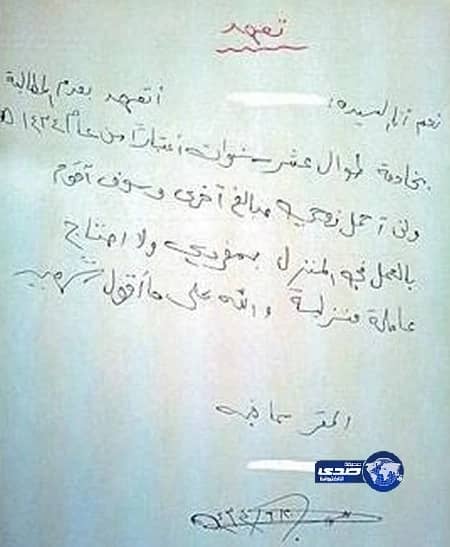 تعهد
نعم أنا السيده / أتعهد بعدم المطالبة
بخادمة طوال عشر سنوات أعتباراً من عام ١٤٣٤هـ
ولن أحمل زوجي مبالغ آخرى وسوف أقوم
بالعمل في المنزل بمفردي ولا احتاج
عاملة منزلية والله على ما أقول شهيد
المقر بما فيه
صحيفة صدى الالكترونية